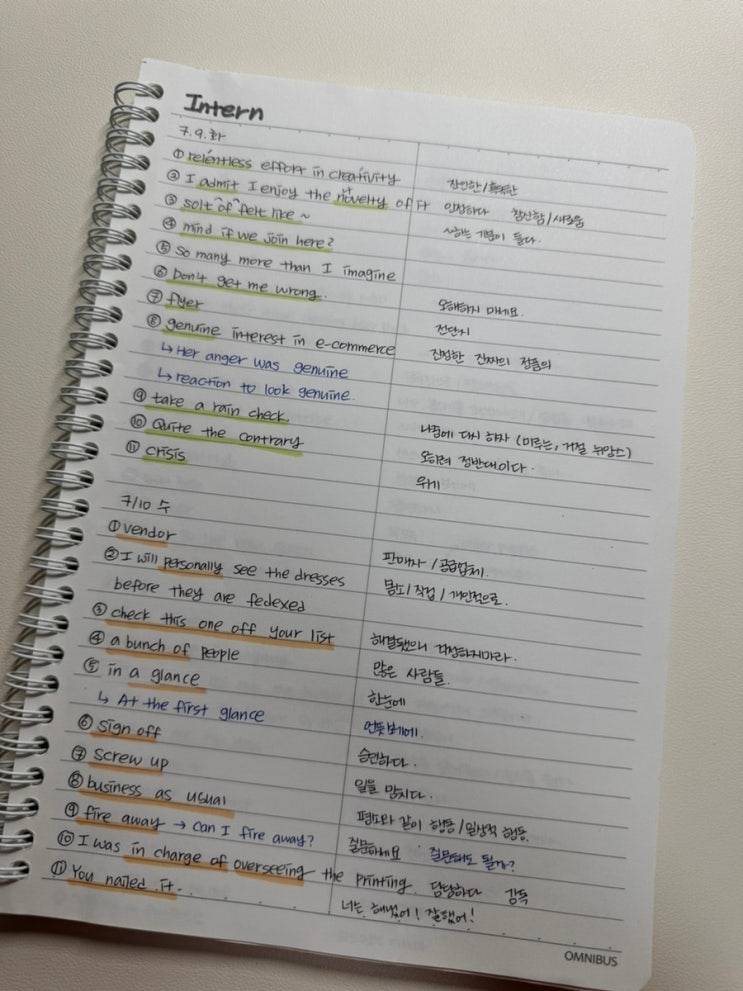 Intern
7.9.화
① relentless effort in creativity 잔인한/혹독한
② I admit I enjoy the novelty of it 인정하다 참신함/새로움
③ solt of felt like ~ ~하는 기분이 들다.
④ mind if we join here?
⑤ So many more than I imagine
⑥ Don't get me wrong. 오해하지 마세요.
⑦ flyer 전단지
⑧ genuine interest in e-commerce 진범한 진짜의 정품의
↳ Her anger was genuine
↳ reaction to look genuine.
⑨ take a rain check 나중에 다시 하자 (미루는, 거절 뉘앙스)
⑩ Quite the contrary 오히려 정반대이다.
⑪ crisis 위기
7/10 수
① vendor 판매자 / 공급업체.
② I will personally see the dresses 몸소/직접 / 개인적으로.
before they are fedexed
③ check this one off your list 해결됐으니 걱정하지마라.
④ a bunch of people 많은 사람들.
⑤ in a glance 한눈에
↳ At the first glance 언뜻 보게에.
⑥ sign off 승인하다.
⑦ screw up 일을 망치다.
⑧ business as usual 평소와 같이 행동/일상적 행동.
⑨ fire away → can I fire away? 질문하세요 질문해도 될까?
⑩ I was in charge of overseeing the printing. 담당하다 감독
⑪ You nailed it. 너는 해냈어! 잘했어!
OMNIBUS